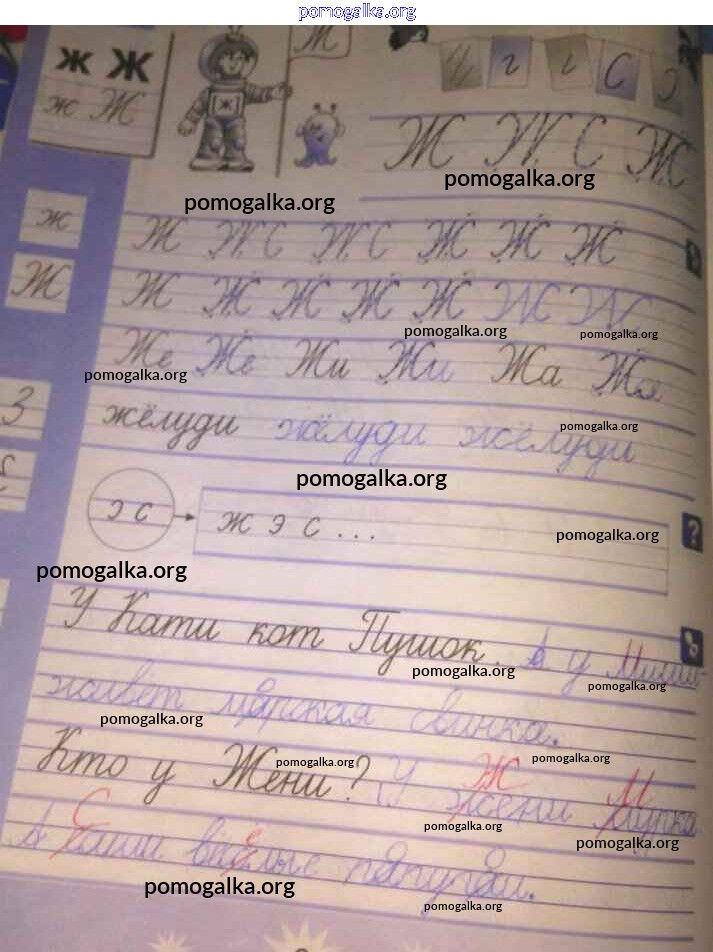 pomogalka.org
ж Ж Ж
ж Ж
Ж
г г С Э
Ж Ж С Ж
pomogalka.org
pomogalka.org
ж Ж Ж С Ж С Ж Ж Ж
Ж Ж Ж Ж Ж Ж Ж Ж
pomogalka.org pomogalka.org
Же Же Жи Жи Жа Жа
pomogalka.org
З
жёлуди жёлуди жёлуди
pomogalka.org
pomogalka.org
э с ж э с ... ?
pomogalka.org
pomogalka.org
У Кати кот Пушок. А у Миши
pomogalka.org pomogalka.org
живёт морская свинка.
pomogalka.org
Кто у Жени? У Жени Мурка
pomogalka.org pomogalka.org
Ж М
pomogalka.org pomogalka.org
А С весёлые попугаи.
pomogalka.org
pomogalka.org